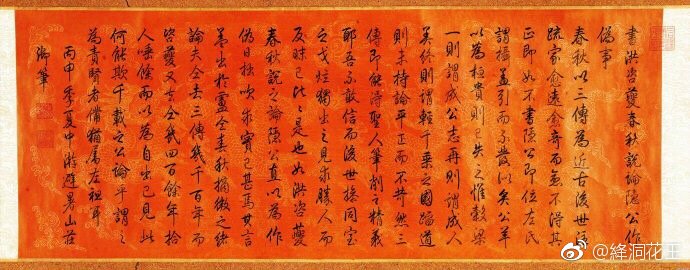 書洪咨夔春秋說論隱公作
偽事
春秋以三傳為近古後世註
疏家愈遠愈奇而無不得其
正即如不書隱公即位左氏
謂攝蓋引而不發以矣公羊
以為桓貴則已失之惟穀梁
一則謂成公志再則謂成人
美終則謂輕千乘之國蹈道
則未持論平正而不苛然三
傳即能得聖人筆削之精義
耶吾不敢信而後世操同室
之戈炫獨出之見求勝人而
反昧己比比是也如洪咨夔
春秋說之論隱公直以為作
偽日拙吹求實已甚焉其言
蓋出於盧仝春秋摘微之緒
論夫仝去三傳幾千百年而
咨夔又去仝幾四百餘年拾
人唾餘而以為自出己見此
何能欺千載之公論乎謂之
為責賢者備猶屬左袒耳
丙申季夏中澣避暑山莊
御筆
@絳洞花王